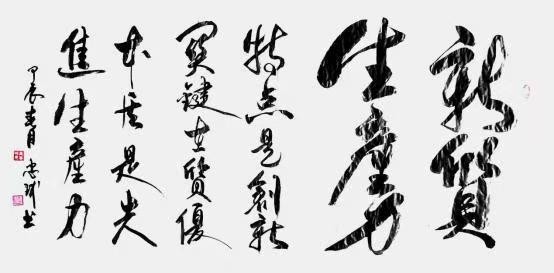 新質
生產力
特点是創新
関鍵在質優
本质是先
進生產力
甲辰春月